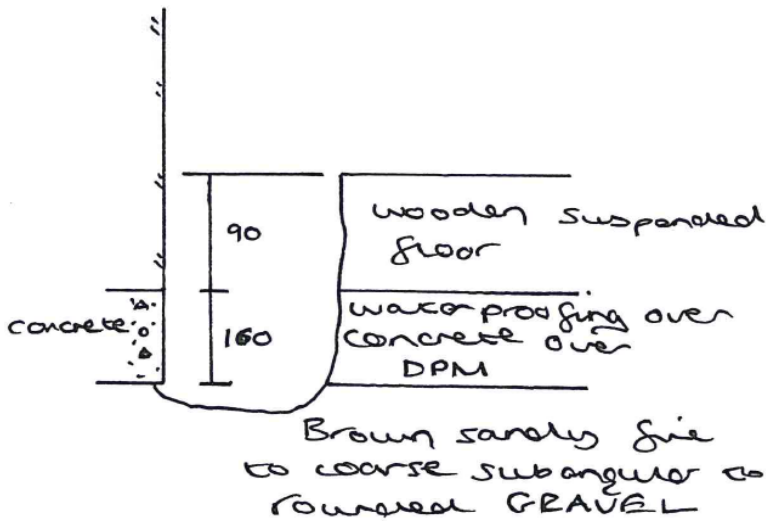 90
wooden suspended
floor
concrete
160
waterproofing over
concrete over
DPM
Brown sandy fine
to coarse subangular to
rounded GRAVEL